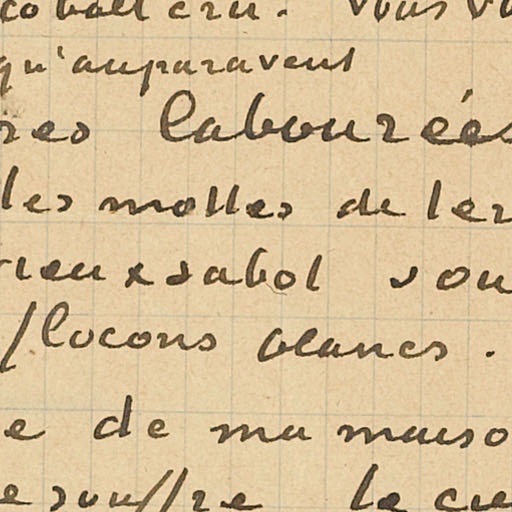 cobalt cru. Vous v
qu'auparavent
res labourées
les mottes de ter
vieux sabot sou
flocons blancs.
e de ma maiso
e souffre le cie